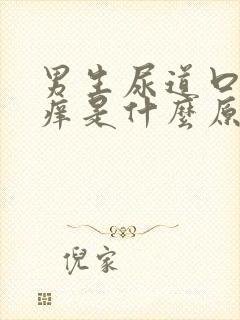 男生尿道口
痒是什麽原
倪家